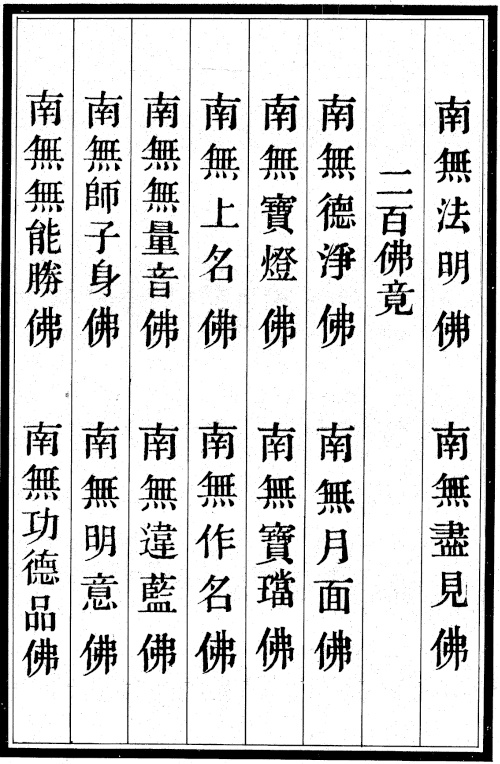 南無法明佛 南無盡見佛
二百佛竟
南無德淨佛 南無月面佛
南無寶燈佛 南無寶璫佛
南無上名佛 南無作名佛
南無無量音佛 南無違藍佛
南無師子身佛 南無明意佛
南無無能勝佛 南無功德品佛